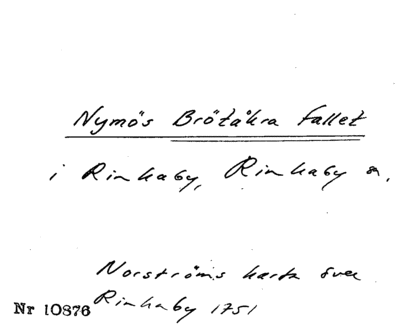 Nymö's Brötåkra fallet
i Rinkaby, Rinkaby sn.
Norströms karta över
Nr 10876 Rinkaby 1751